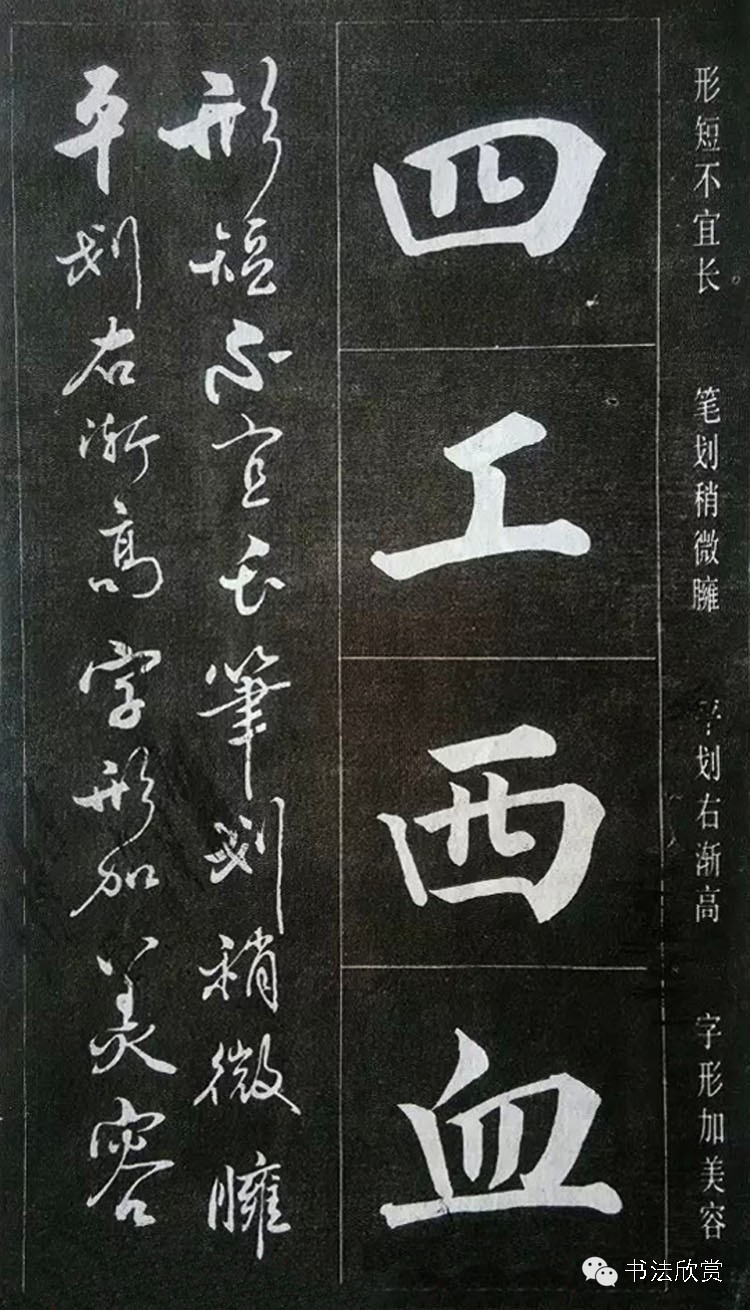 形短不宜长 笔划稍微臃 平划右渐高 字形加美容
四
工
西
血
形短不宜长筆划稍微臃
平划右渐高字形加美容
书法欣赏